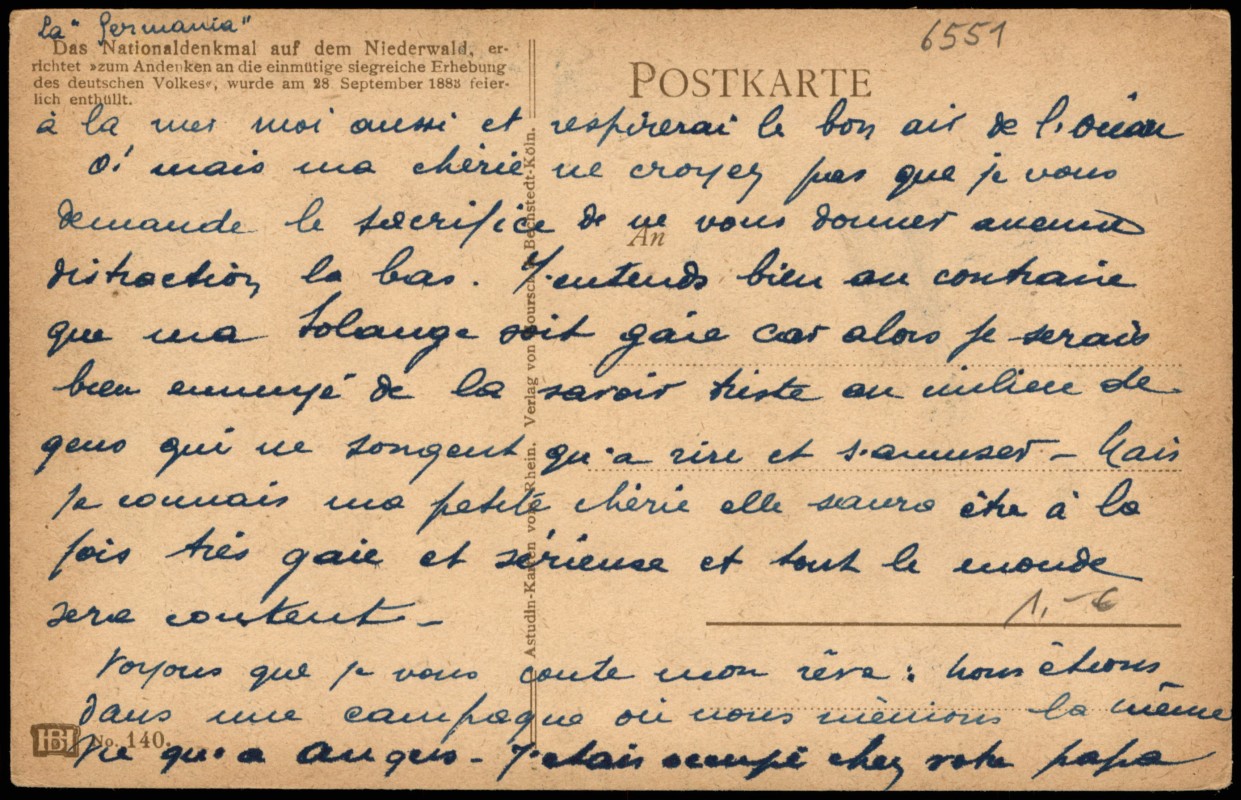 La "Germania"
6551
Das Nationaldenkmal auf dem Niederwald, er-
richtet »zum Andenken an die einmütige siegreiche Erhebung
des deutschen Volkes«, wurde am 28. September 1883 feier-
lich enthüllt.
POSTKARTE
An
à la mer moi aussi et respirerai le bon air de l'océan
O! mais ma chérie ne croyez pas que je vous
demande le sacrifice de ne vous donner aucune
distraction la bas. J'entends bien au contraire
que ma Solange soit gaie car alors je serais
bien ennuyé de la savoir triste au milieu de
gens qui ne songent qu'a rire et s'amuser - Mais
je connais ma petite chérie elle saura être à la
fois très gaie et sérieuse et tout le monde
sera content -
1,- €
Voyons que je vous conte mon rêve : nous étions
dans une campagne où nous menions la même
vie qu'a - J'étais occupé chez votre papa
HB No. 140.
Astudin-Karten vom Rhein. Verlag von Hoursch & Bechstedt-Köln.